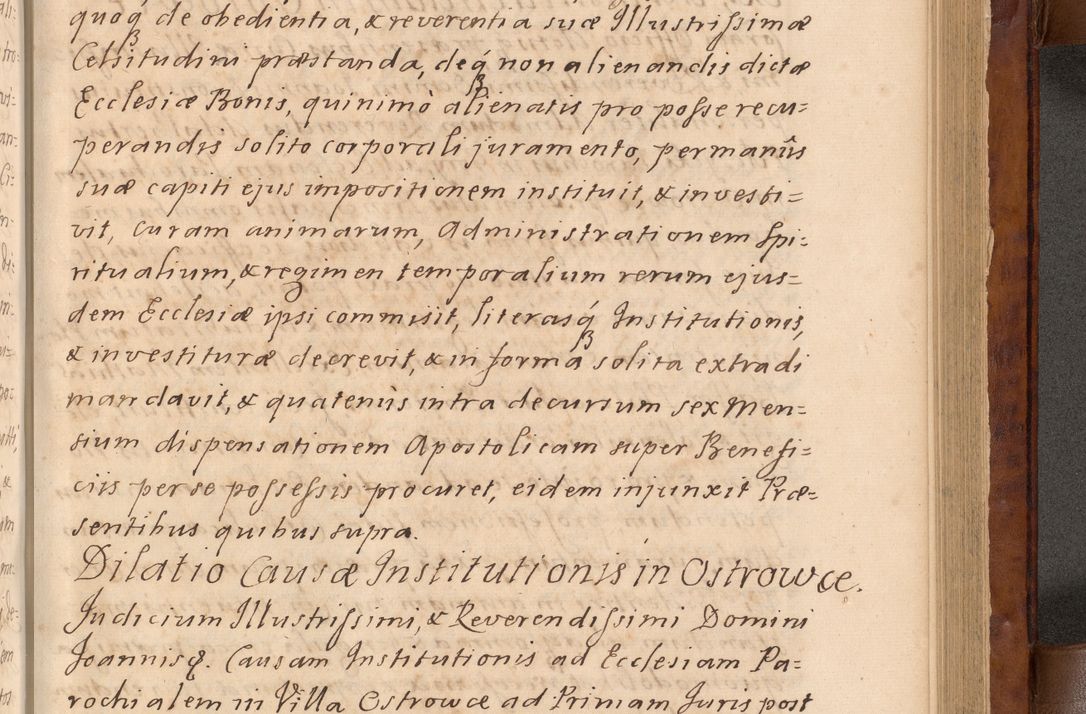 quoq́ de obedientia, & reverentia suæ Illustrissimæ
Celsitudini præstanda, deq́ non alienandis dictæ
Ecclesiæ Bonis, quinimò alienatis pro posse recu=
perandis solito corporali juramento, per manûs
suæ capiti ejus impositionem instituit, & investi=
vit, curam animarum, Administrationem Spi=
ritualium, & regimen temporalium rerum ejus=
dem Ecclesiæ ipsi commisit, literasq́ Institutionis,
& investituræ decrevit, & in forma solita extradi
mandavit, & quatenùs intra decursum sex Men=
sium dispensationem Apostolicam super Benefi=
ciis per se possessis procuret, eidem injunxit Præ=
sentibus quibus supra.
Dilatio Causæ Institutionis in Ostrowce.
Judicium Illustrissimi, & Reverendissimi Domini
Joannisq. Causam Institutionis ad Ecclesiam Pa=
rochialem in Villa Ostrowce ad Primam Juris post